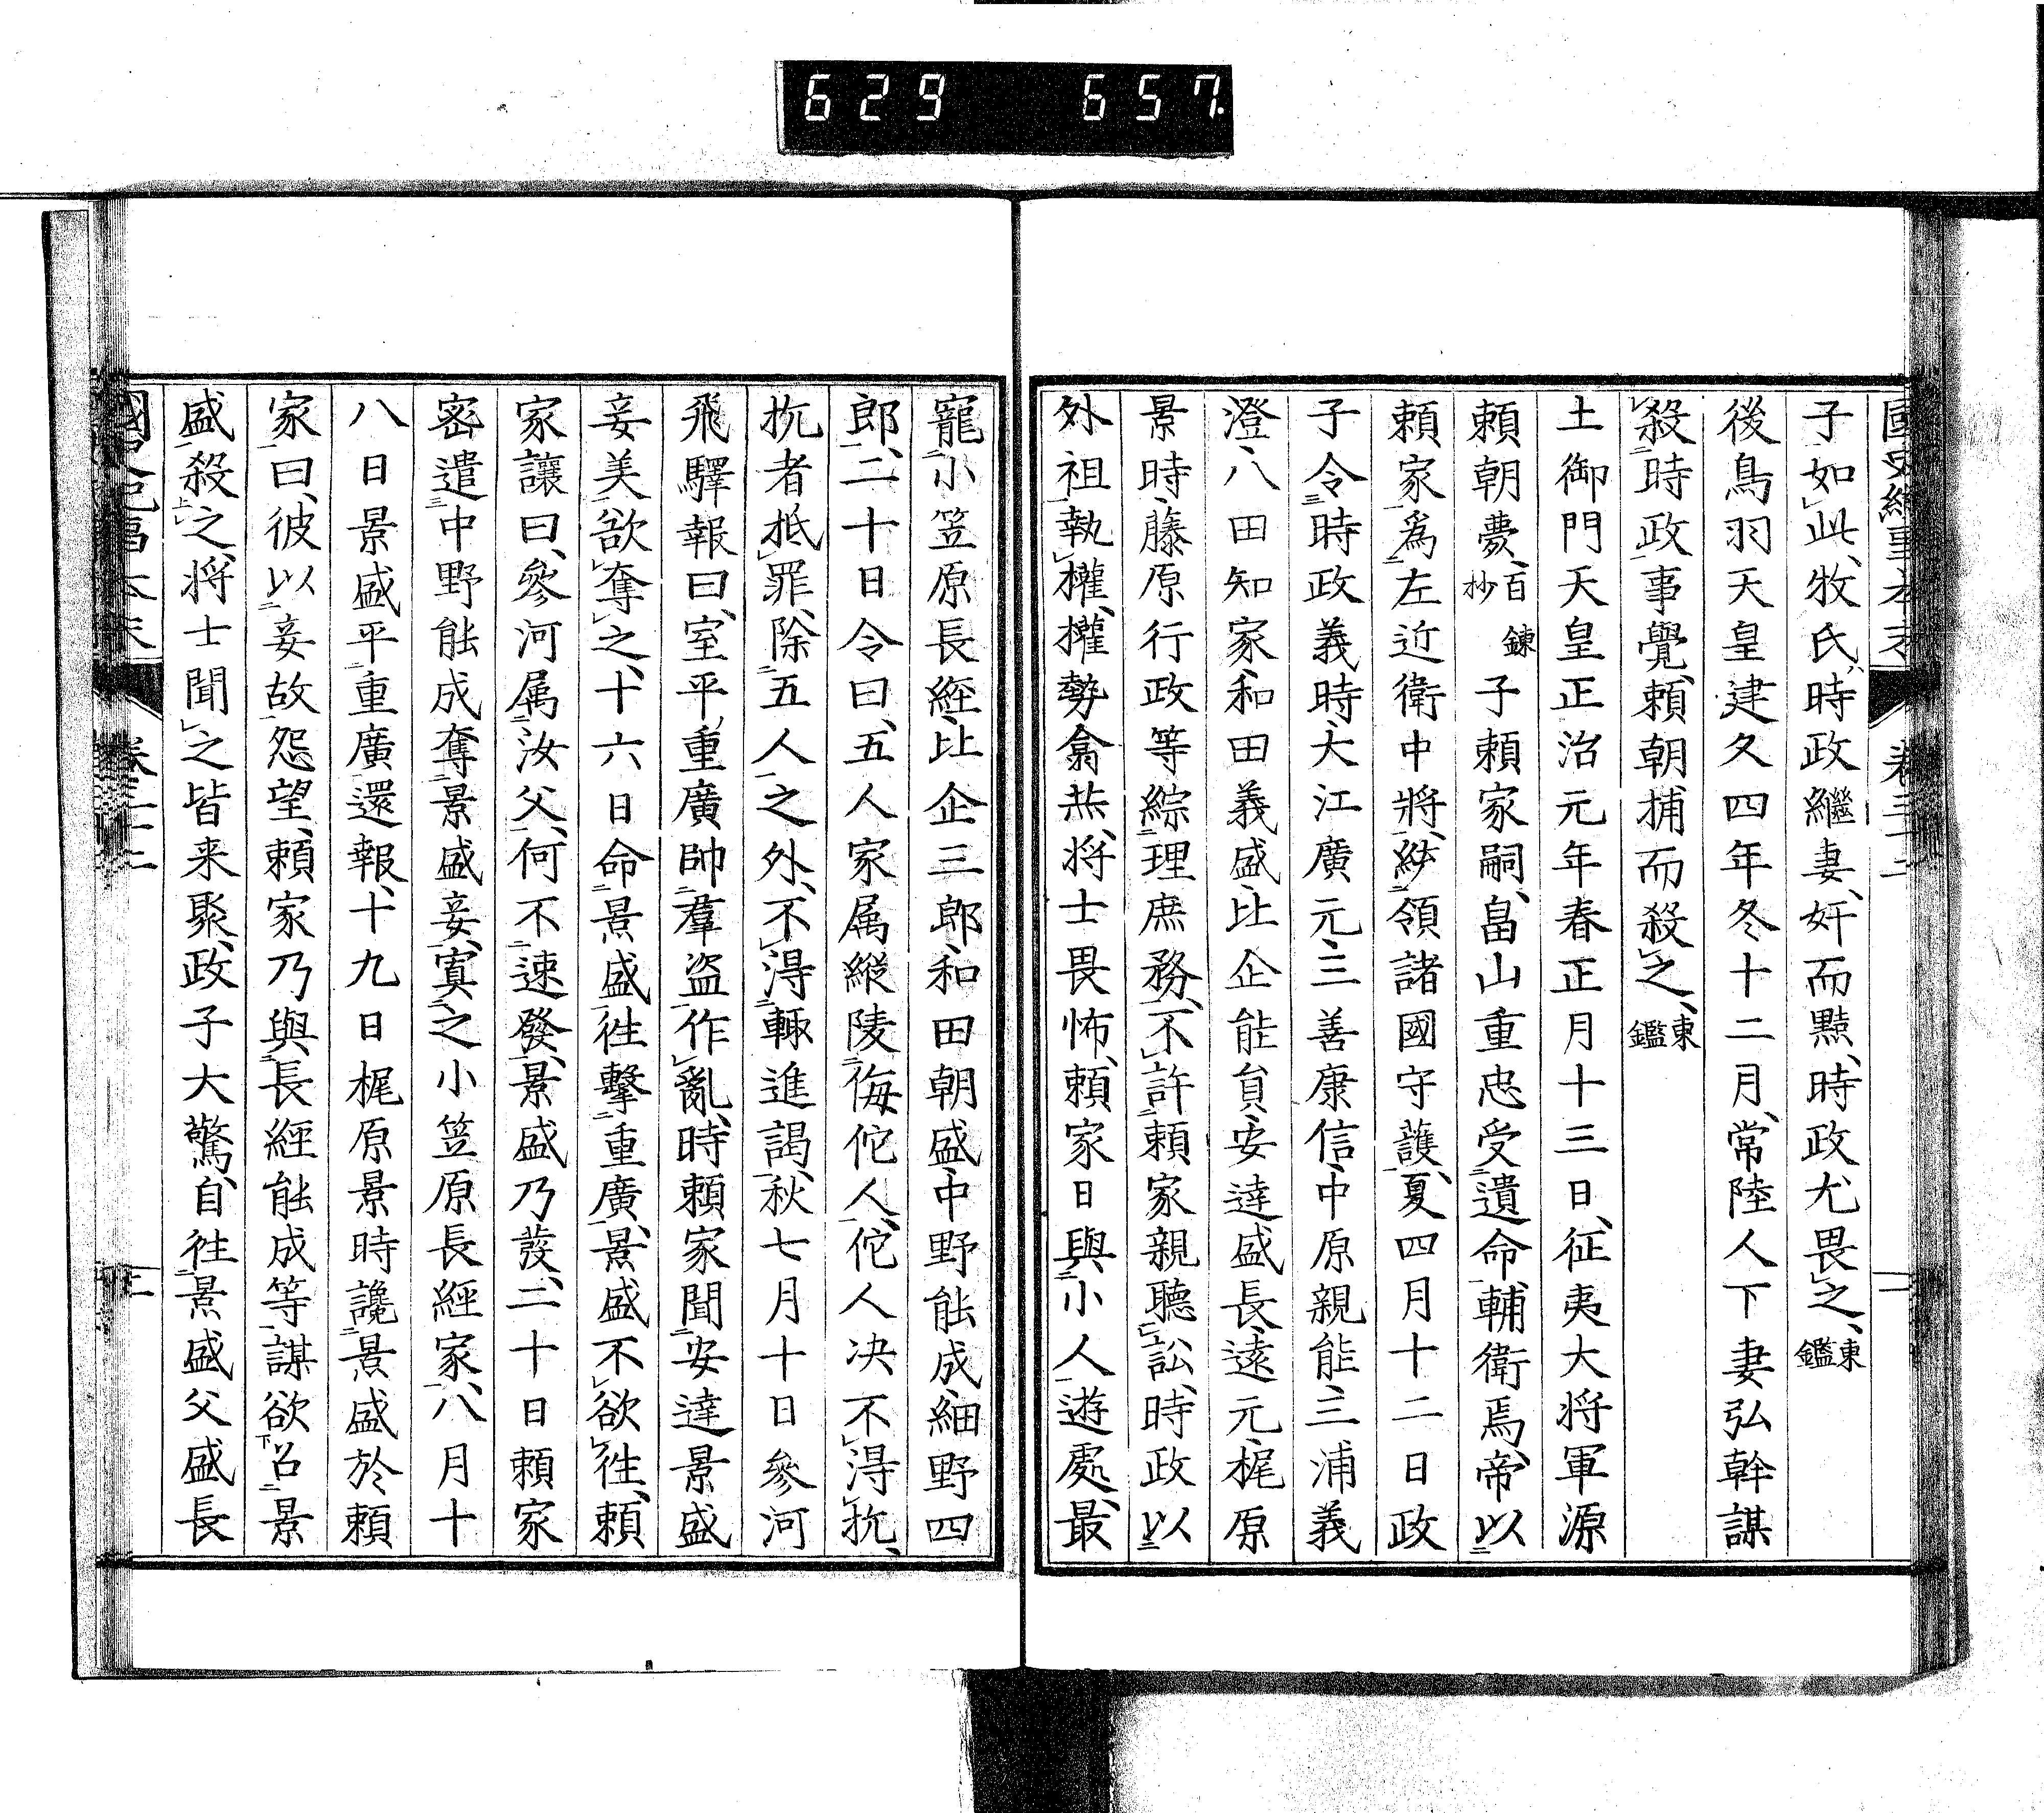 629 657
子如此、牧氏、時政繼妻、奸而黠、時政尤畏之、東鑑
後鳥羽天皇建久四年冬十二月、常陸人下妻弘幹謀
殺時政、事覺、賴朝捕而殺之、東鑑
土御門天皇正治元年春正月十三日、征夷大将軍源
賴朝薨、百鍊抄子賴家嗣、畠山重忠受遺命輔衛焉、帝以
賴家爲左近衛中將、総領諸國守護、夏四月十二日政
子令時政義時、大江廣元、三善康信、中原親能、三浦義
澄、八田知家、和田義盛、比企能員、安達盛長、遠元、梶原
景時、藤原行政等綜理庶務、不許賴家親聽訟、時政以
外祖執權、權勢翕㷠、将士畏怖、賴家日與小人遊處、最
寵小笠原長經、比企三郎、和田朝盛、中野能成、細野四
郎、二十日令曰、五人家属縦陵侮佗人、佗人决不得抗、
抗者抵罪、除五人之外、不得輙進謁、秋七月十日參河
飛驛報曰、室平重廣帥羣盗作亂、時賴家聞安達景盛
妾美欲奪之、十六日命景盛徃擊重廣、景盛不欲徃、賴
家讓曰、參河属汝父、何不速發、景盛乃發、二十日賴家
密遣中野能成奪景盛妾、寘之小笠原長經家、八月十
八日景盛平重廣還報、十九日梶原景時讒景盛於賴
家曰、彼以妾故怨望、賴家乃與長經能成等謀欲召景
盛殺之、将士聞之皆来聚、政子大驚、自徃景盛父盛長